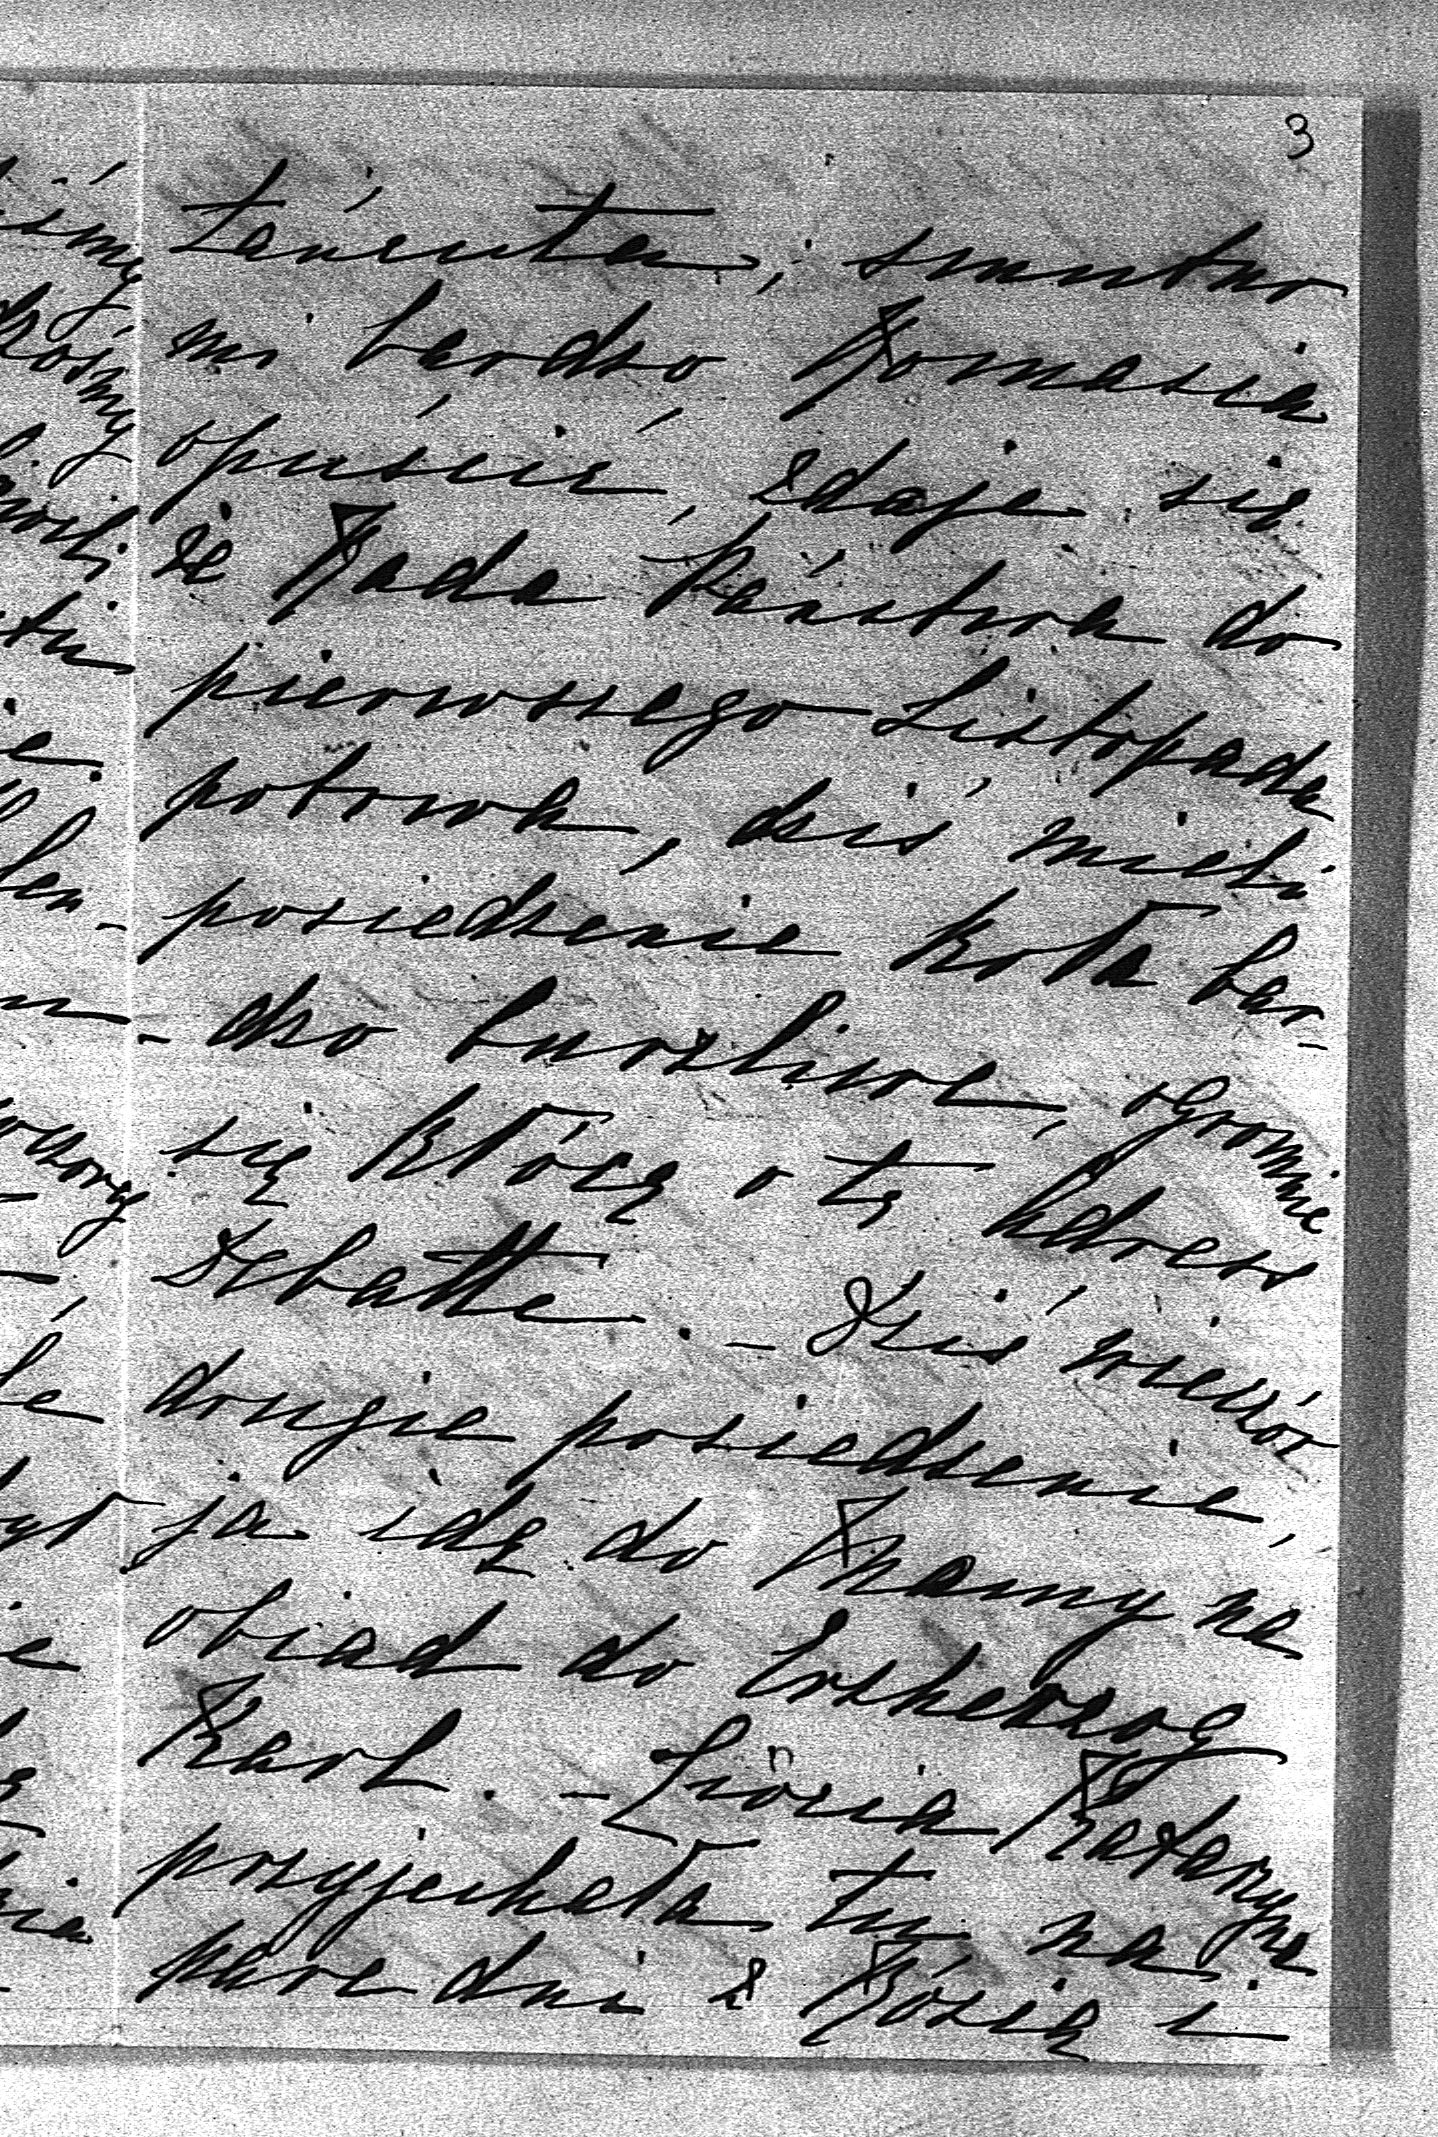 3
smutno
mi bardzo Romasia
opuścić, zdaje się
że Rada Państwa do
pierwszego Listopada
potrwa, dziś mieli
posiedzenie Koła bar-
-dzo burzliwe, ogromnie
się kłócą o tę Adress
Debatte. - Dziś wieczór
drugie posiedzenie,
ja idę do Mamy na
obiad do Erzherzog
Karl. - Ziózia Katarzyna
przyjechała tu na
parę dni z Rózią i